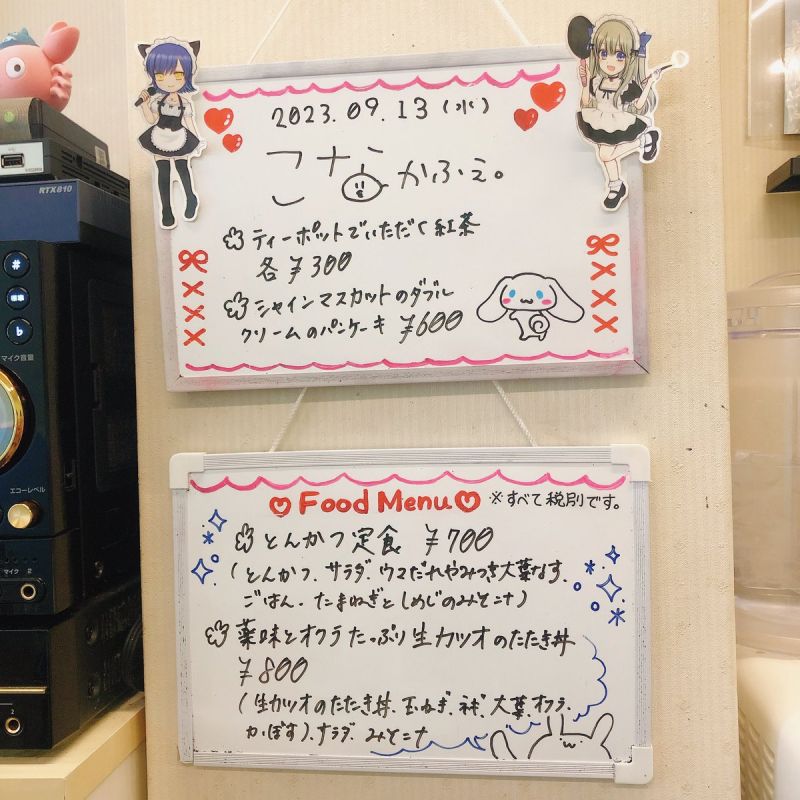 2023.09.13 (水)
こならかふぇ。
ティーポットでいただく紅茶
各¥300
シャインマスカットのダブル
クリームのパンケーキ ¥600
Food Menu ※すべて税別です。
とんかつ定食 ¥700
(とんかつ、サラダ、ウマだれやみつき大葉なす、
ごはん、たまねぎとしめじのみそ汁)
薬味とオクラたっぷり生カツオのたたき丼
¥800
(生カツオのたたき丼、玉ねぎ、ネギ、大葉、オクラ、
かぼす)、サラダ、みそ汁
RTX810
#
♭
マイク音量
エコーレベル
マイク 2
2